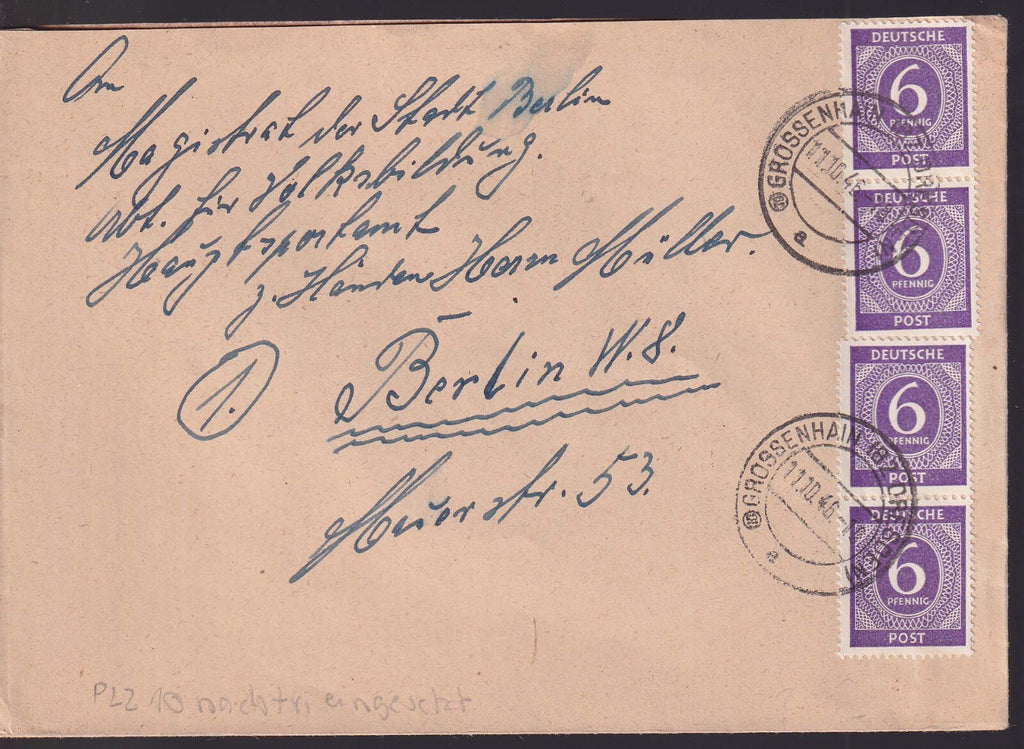 An
Magistrat der Stadt Berlin
Abt. für Volksbildung.
Hauptsportamt
z. Händen Herrn Müller.
1.
Berlin W. 8.
Mauerstr. 53.
DEUTSCHE
6
PFENNIG
POST
DEUTSCHE
6
PFENNIG
POST
DEUTSCHE
6
PFENNIG
POST
DEUTSCHE
6
PFENNIG
POST
GROSSENHAIN
11.10.46
a
GROSSENHAIN
11.10.46
a
PLZ 10 nachtr. eingesetzt